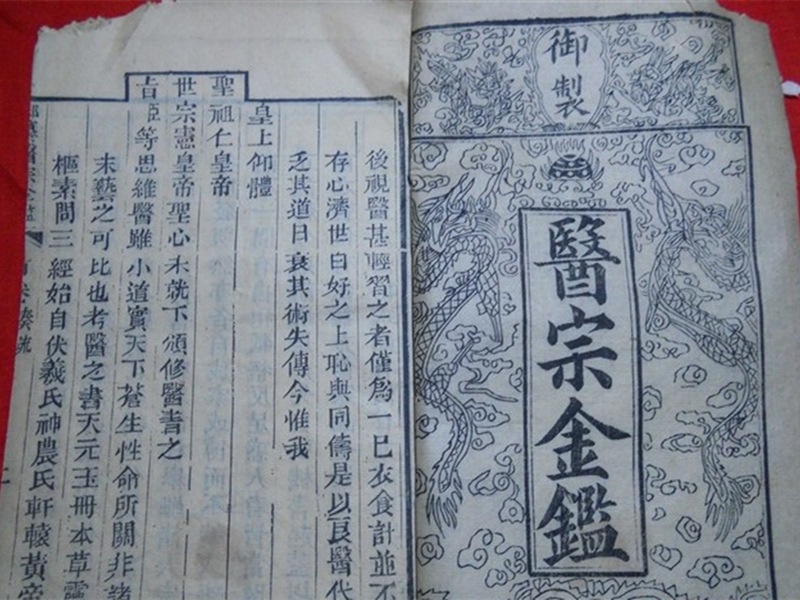 御製
醫宗金鑑
後視醫甚輕習之者僅為一已衣食計並不
存心濟世白好之上恥與同儔是以良醫代
乏其道日衰其術失傳今惟我
皇上仰體
聖祖仁皇帝
世宗憲皇帝聖心未就下頒修醫書之
旨臣等思維醫雖小道實天下蒼生性命所關非諸
末藝之可比也考醫之書天元玉冊本草靈
樞素問三經始自伏羲氏神農氏軒轅黃帝
首卷奏疏